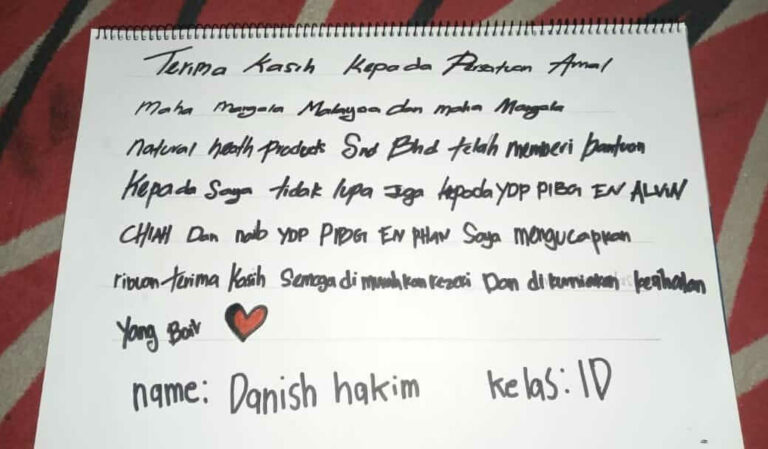 Terima Kasih Kepada Persatuan Amal
Maha Manggala Malaysia dan maha Manggala
natural heath products Snd Bhd telah memberi bantuan
Kepada Saya tidak lupa Juga kepada YDP PIBG EN ALVIN
CHIAH Dan naib YDP PIBG EN PHAN Saya mengucapkan
ribuan terima Kasih Semoga di murahkan rezeki Dan di kurniakan kesihatan
Yang Baik
name: Danish hakim kelas: 1D